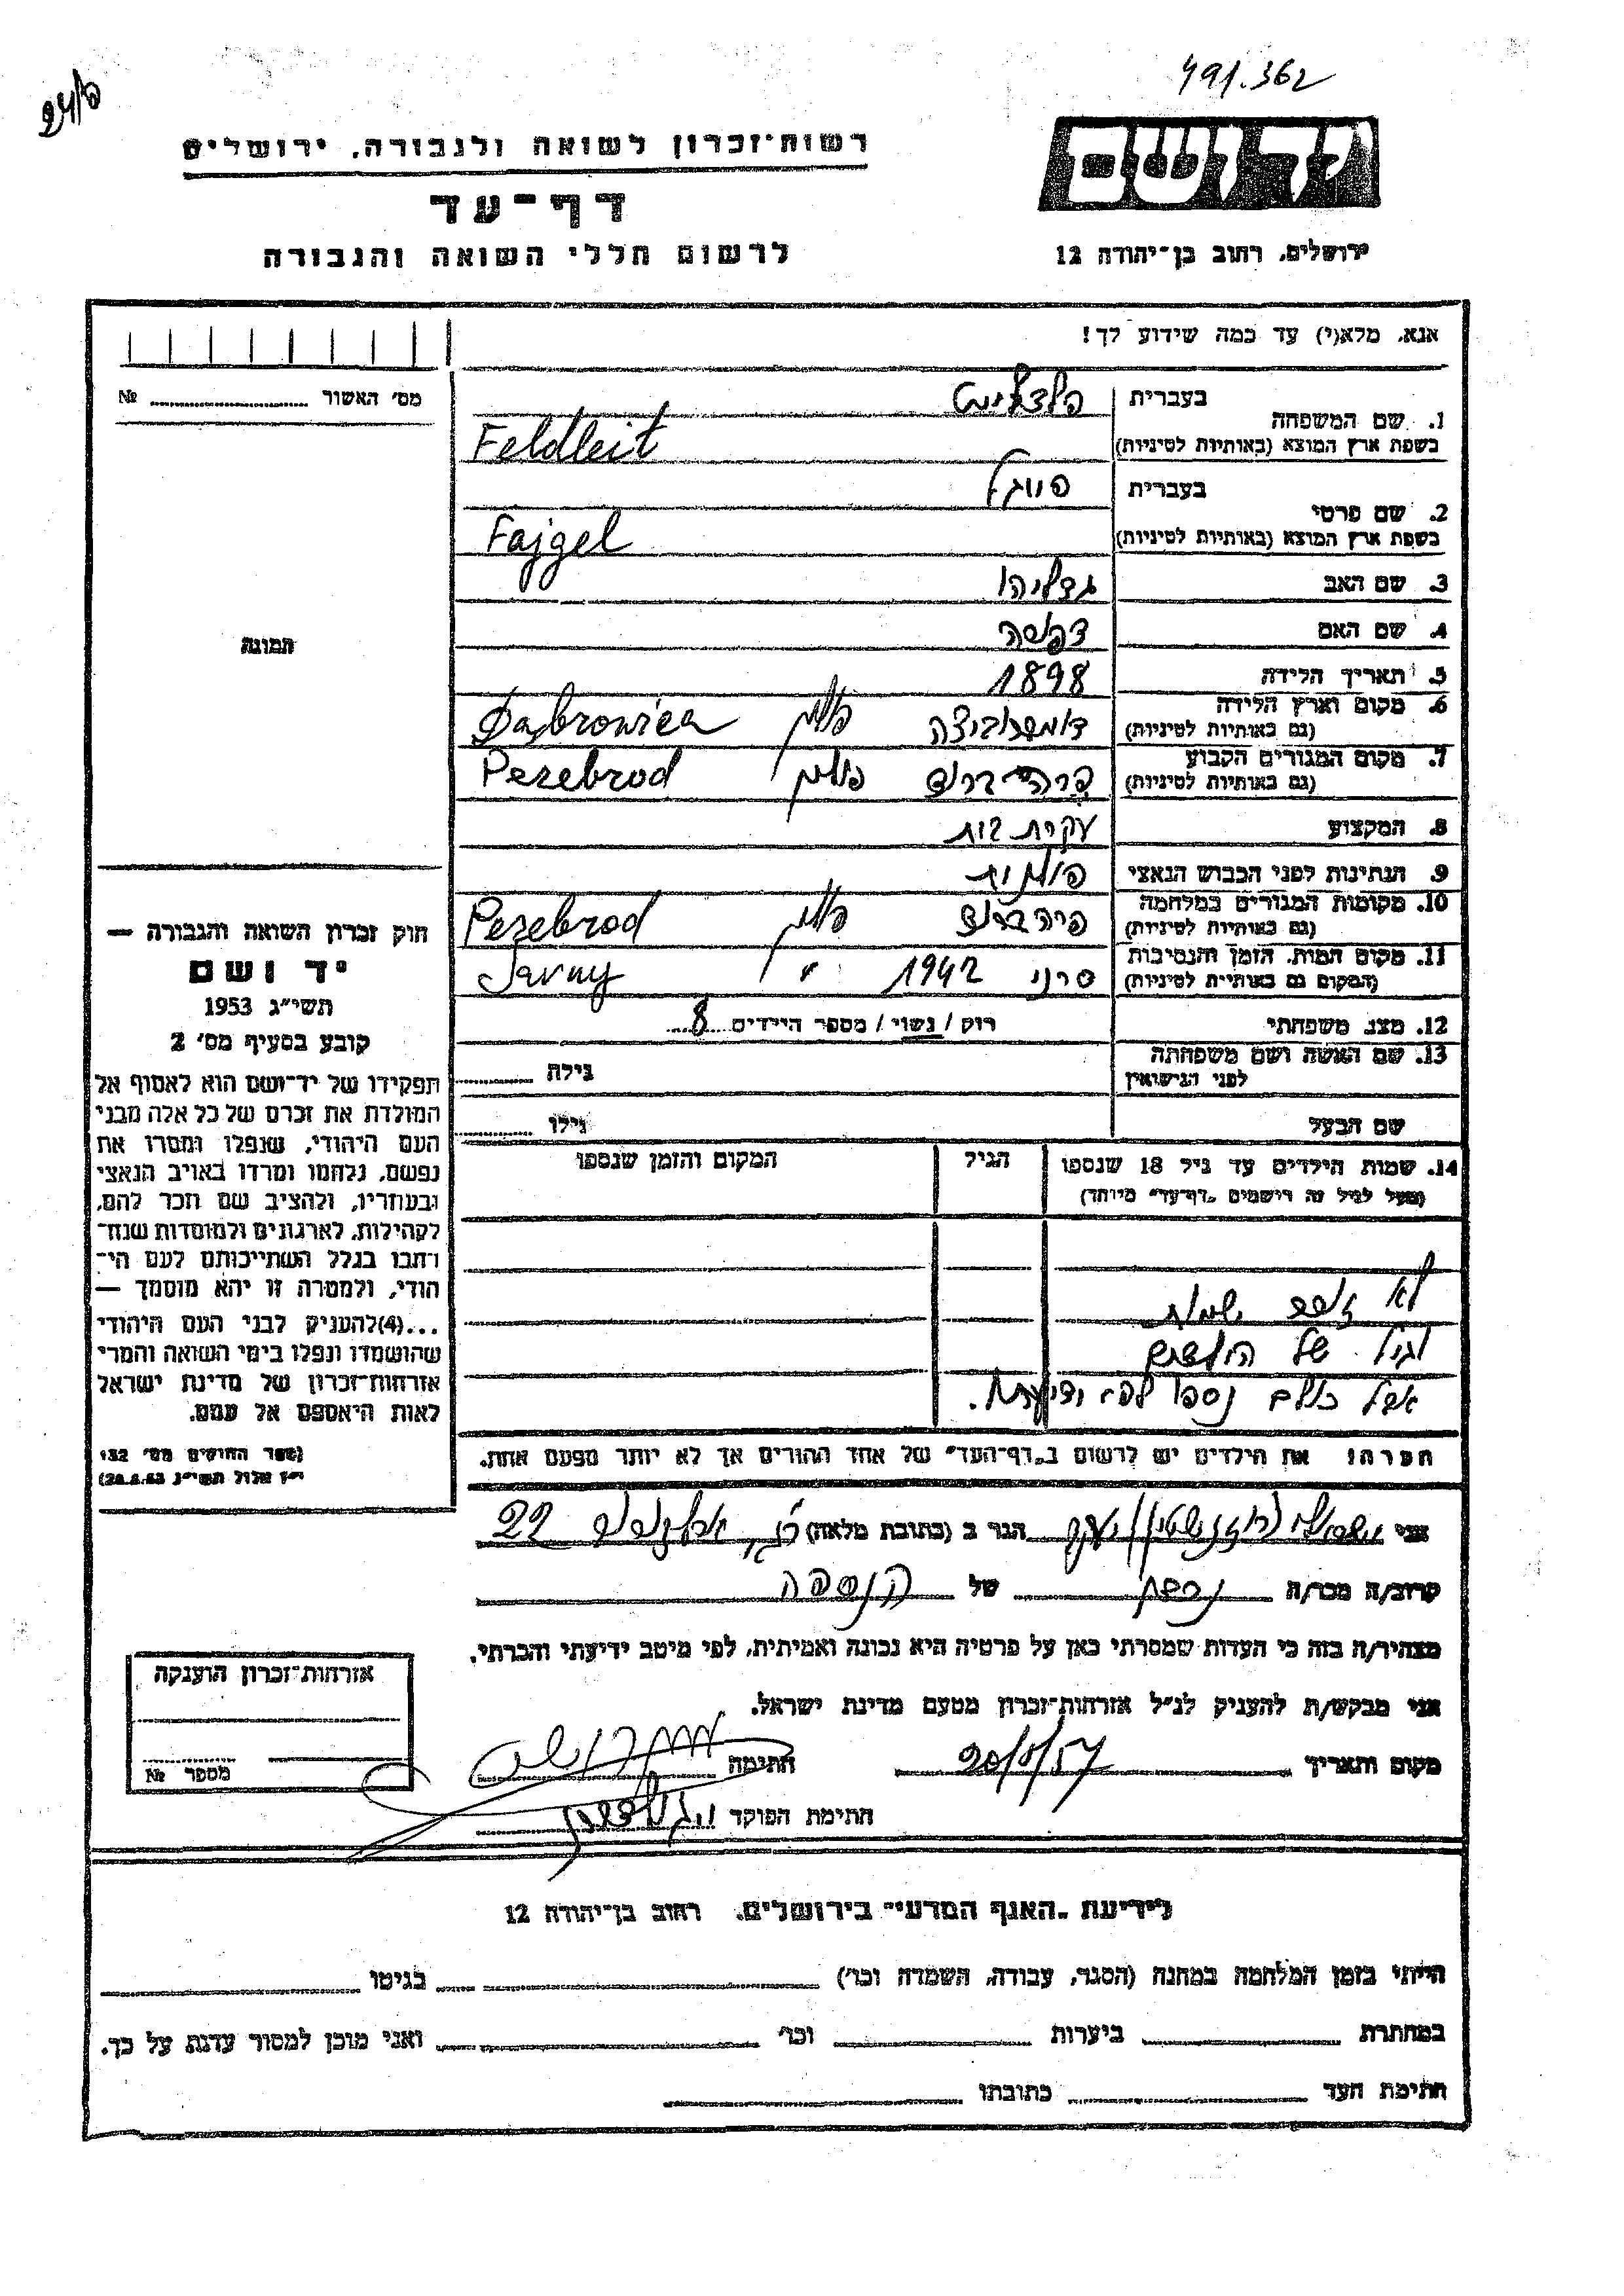 491.362
24/6
רשות־זכרון לשואה ולגבורה, ירושלים
יד ושם
דף־עד
לרשום חללי השואה והגבורה
ירושלים, רחוב בן־יהודה 12
אנא, מלא(י) עד כמה שידוע לך!
מס׳ האשור № 
1. שם המשפחה
בעברית
פלדלייט
בשפת ארץ המוצא (באותיות לטיניות)
Feldleit
2. שם פרטי
בעברית
פייגל
בשפת ארץ המוצא (באותיות לטיניות)
Fajgel
3. שם האב גדליהו
תמונה
4. שם האם
5. תאריך הלידה 1898
6. מקום וארץ הלידה
(גם באותיות לטיניות)
דומברוביצה פולין Dąbrowica
7. מקום המגורים הקבוע
(גם באותיות לטיניות)
פולין Pezebrod
8. המקצוע עקרת בית
9. הנתינות לפני הכבוש הנאצי פולנית
10. מקומות המגורים במלחמה
(גם באותיות לטיניות)
פולין Pezebrod
11. מקום המות, הזמן והנסיבות
(המקום גם באותיות לטיניות)
סרני 1942 " Sarny
12. מצב משפחתי רוק / נשוי / מספר הילדים 8
13. שם האשה ושם משפחתה
לפני הנישואין
גילה
שם הבעל גילו
14. שמות הילדים עד גיל 18 שנספו
(מעל לגיל זה רישמים „דף־עד״ מיוחד)
הגיל
המקום והזמן שנספו
לא זוכר שמות
וגיל של הילדים
אבל כולם נספו לפי ידיעתי.
הערה: את הילדים יש לרשום ב„דף־העד״ של אחד ההורים אך לא יותר מפעם אחת.
חוק זכרון השואה והגבורה —
יד ושם
תשי״ג 1953
קובע בסעיף מס׳ 2
תפקידו של יד־ושם הוא לאסוף אל
המולדת את זכרם של כל אלה מבני
העם היהודי, שנפלו ומסרו את
נפשם, נלחמו ומרדו באויב הנאצי
ובעוזריו, ולהציב שם וזכר להם,
לקהילות, לארגונים ולמוסדות שנח־
רחבו בגלל השתייכותם לעם הי־
הודי, ולמטרה זו יהא מוסמך —
...(4)להעניק לבני העם היהודי
שהושמדו ונפלו בימי השואה והמרי
אזרחות־זכרון של מדינת ישראל
לאות היאספם אל עמם.
(ספר החוקים מס׳ 132
י״ז אלול תשי״ג 28.8.53)
אני יעקב הגר ב (כתובת מלאה) 22
קרוב/ה מכר/ה של הנספה
מצהיר/ה בזה כי העדות שמסרתי כאן על פרטיה היא נכונה ואמיתית, לפי מיטב ידיעתי והכרתי.
אני מבקש/ת להעניק לנ״ל אזרחות־זכרון מטעם מדינת ישראל.
מקום ותאריך 20/5/57 חתימה
חתימת הפוקד
אזרחות־זכרון הוענקה
מספר №
לידיעת „האגף המדעי״ בירושלים, רחוב בן־יהודה 12
הייתי בזמן המלחמה במחנה (הסגר, עבודה, השמדה וכר׳) בגיטו
במחתרת ביערות וכר׳ ואני מוכן למסור עדות על כך.
חתימת העד כתובתו